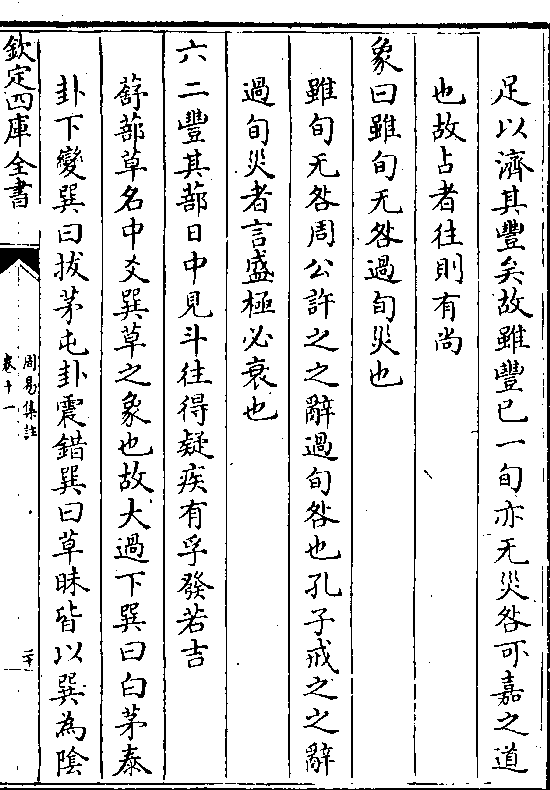 足以濟其豐矣故雖豐已一旬亦无災咎可嘉之道
也故占者往則有尚
象曰雖旬无咎過旬災也
雖旬无咎周公許之之辭過旬咎也孔子戒之之辭
過旬災者言盛極必衰也
六二豐其蔀日中見斗往得疑疾有孚發若吉
蔀草名中爻巽草之象也故大過下巽曰白茅泰
卦下變巽曰拔茅屯卦震錯巽曰草昧皆以巽為陰
欽定四庫全書
周易集註
卷十一
二十